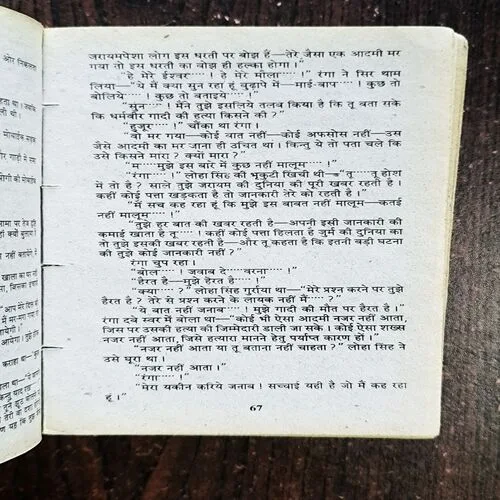 जरायमपेशा लोग इस धरती पर बोझ हैं—तेरे जैसा एक आदमी मर
गया तो इस धरती का बोझ ही हल्का होगा।"
"हे मेरे ईश्वर····· ! हे मेरे मौला····· !" रंगा ने सिर थाम
लिया—"ये मैं क्या सुन रहा हूं बुढ़ापे में—माई-बाप····· ! कुछ तो
बोलिये····· ! कुछ तो बताइये····· !"
"सुन····· ! मैंने तुझे इसलिये तलब किया है कि तू बता सके
कि धर्मवीर गादी की हत्या किसने की ?"
"हुजूर·····" चौंका था रंगा।
"वो मर गया—कोई बात नहीं—कोई अफसोस नहीं—उस
जैसे आदमी का मर जाना ही उचित था। किन्तु ये तो पता चले कि
उसे किसने मारा ? क्यों मारा ?"
"म·····मुझे इस बारे में कुछ नहीं मालूम·····।"
"रंगा····· !" लोहा सिंह की भृकुटी खिंची थी—"तू·····तू होश
में तो है ? साले तुझे जरायम की दुनिया की पूरी खबर रहती है।
कहीं कोई पत्ता खड़कता है तो जानकारी तेरे को रहती है।"
"मैं सच कह रहा हूं कि मुझे इस बाबत नहीं मालूम—कतई
नहीं मालूम····· !"
"तुझे हर बात की खबर रहती है—अपनी इसी जानकारी की
कमाई खाता है तू····· ! कहीं कोई पत्ता हिलता है जुर्म की दुनिया का
तो तुझे इसकी खबर रहती है—और तू कहता है कि इतनी बड़ी घटना
की तुझे कोई जानकारी नहीं ?"
रंगा चुप रहा।
"बोल·····। जवाब दे·····वरना····· !"
"हैरत है—मुझे हैरत है····· !"
"क्या····· ?" लोहा सिंह गुर्राया था—"मेरे प्रश्न करने पर तुझे
हैरत है ? तेरे से प्रश्न करने के लायक नहीं मैं····· ?"
"ये बात नहीं जनाब—! मुझे गादी की मौत पर हैरत है।"
रंगा दबे स्वर में बोला था—"कोई भी ऐसा आदमी नजर नहीं आता,
जिस पर उसकी हत्या की जिम्मेदारी डाली जा सके। कोई ऐसा शख्स
नजर नहीं आता, जिसे हत्यारा मानने हेतु पर्याप्त कारण हों।"
"नजर नहीं आता या तू बताना नहीं चाहता ?" लोहा सिंह ने
उसे घूरा था।
"नजर नहीं आता।"
"रंगा····· !"
"मेरा यकीन करिये जनाब ! सच्चाई यही है जो मैं कह रहा
हूं।"
67